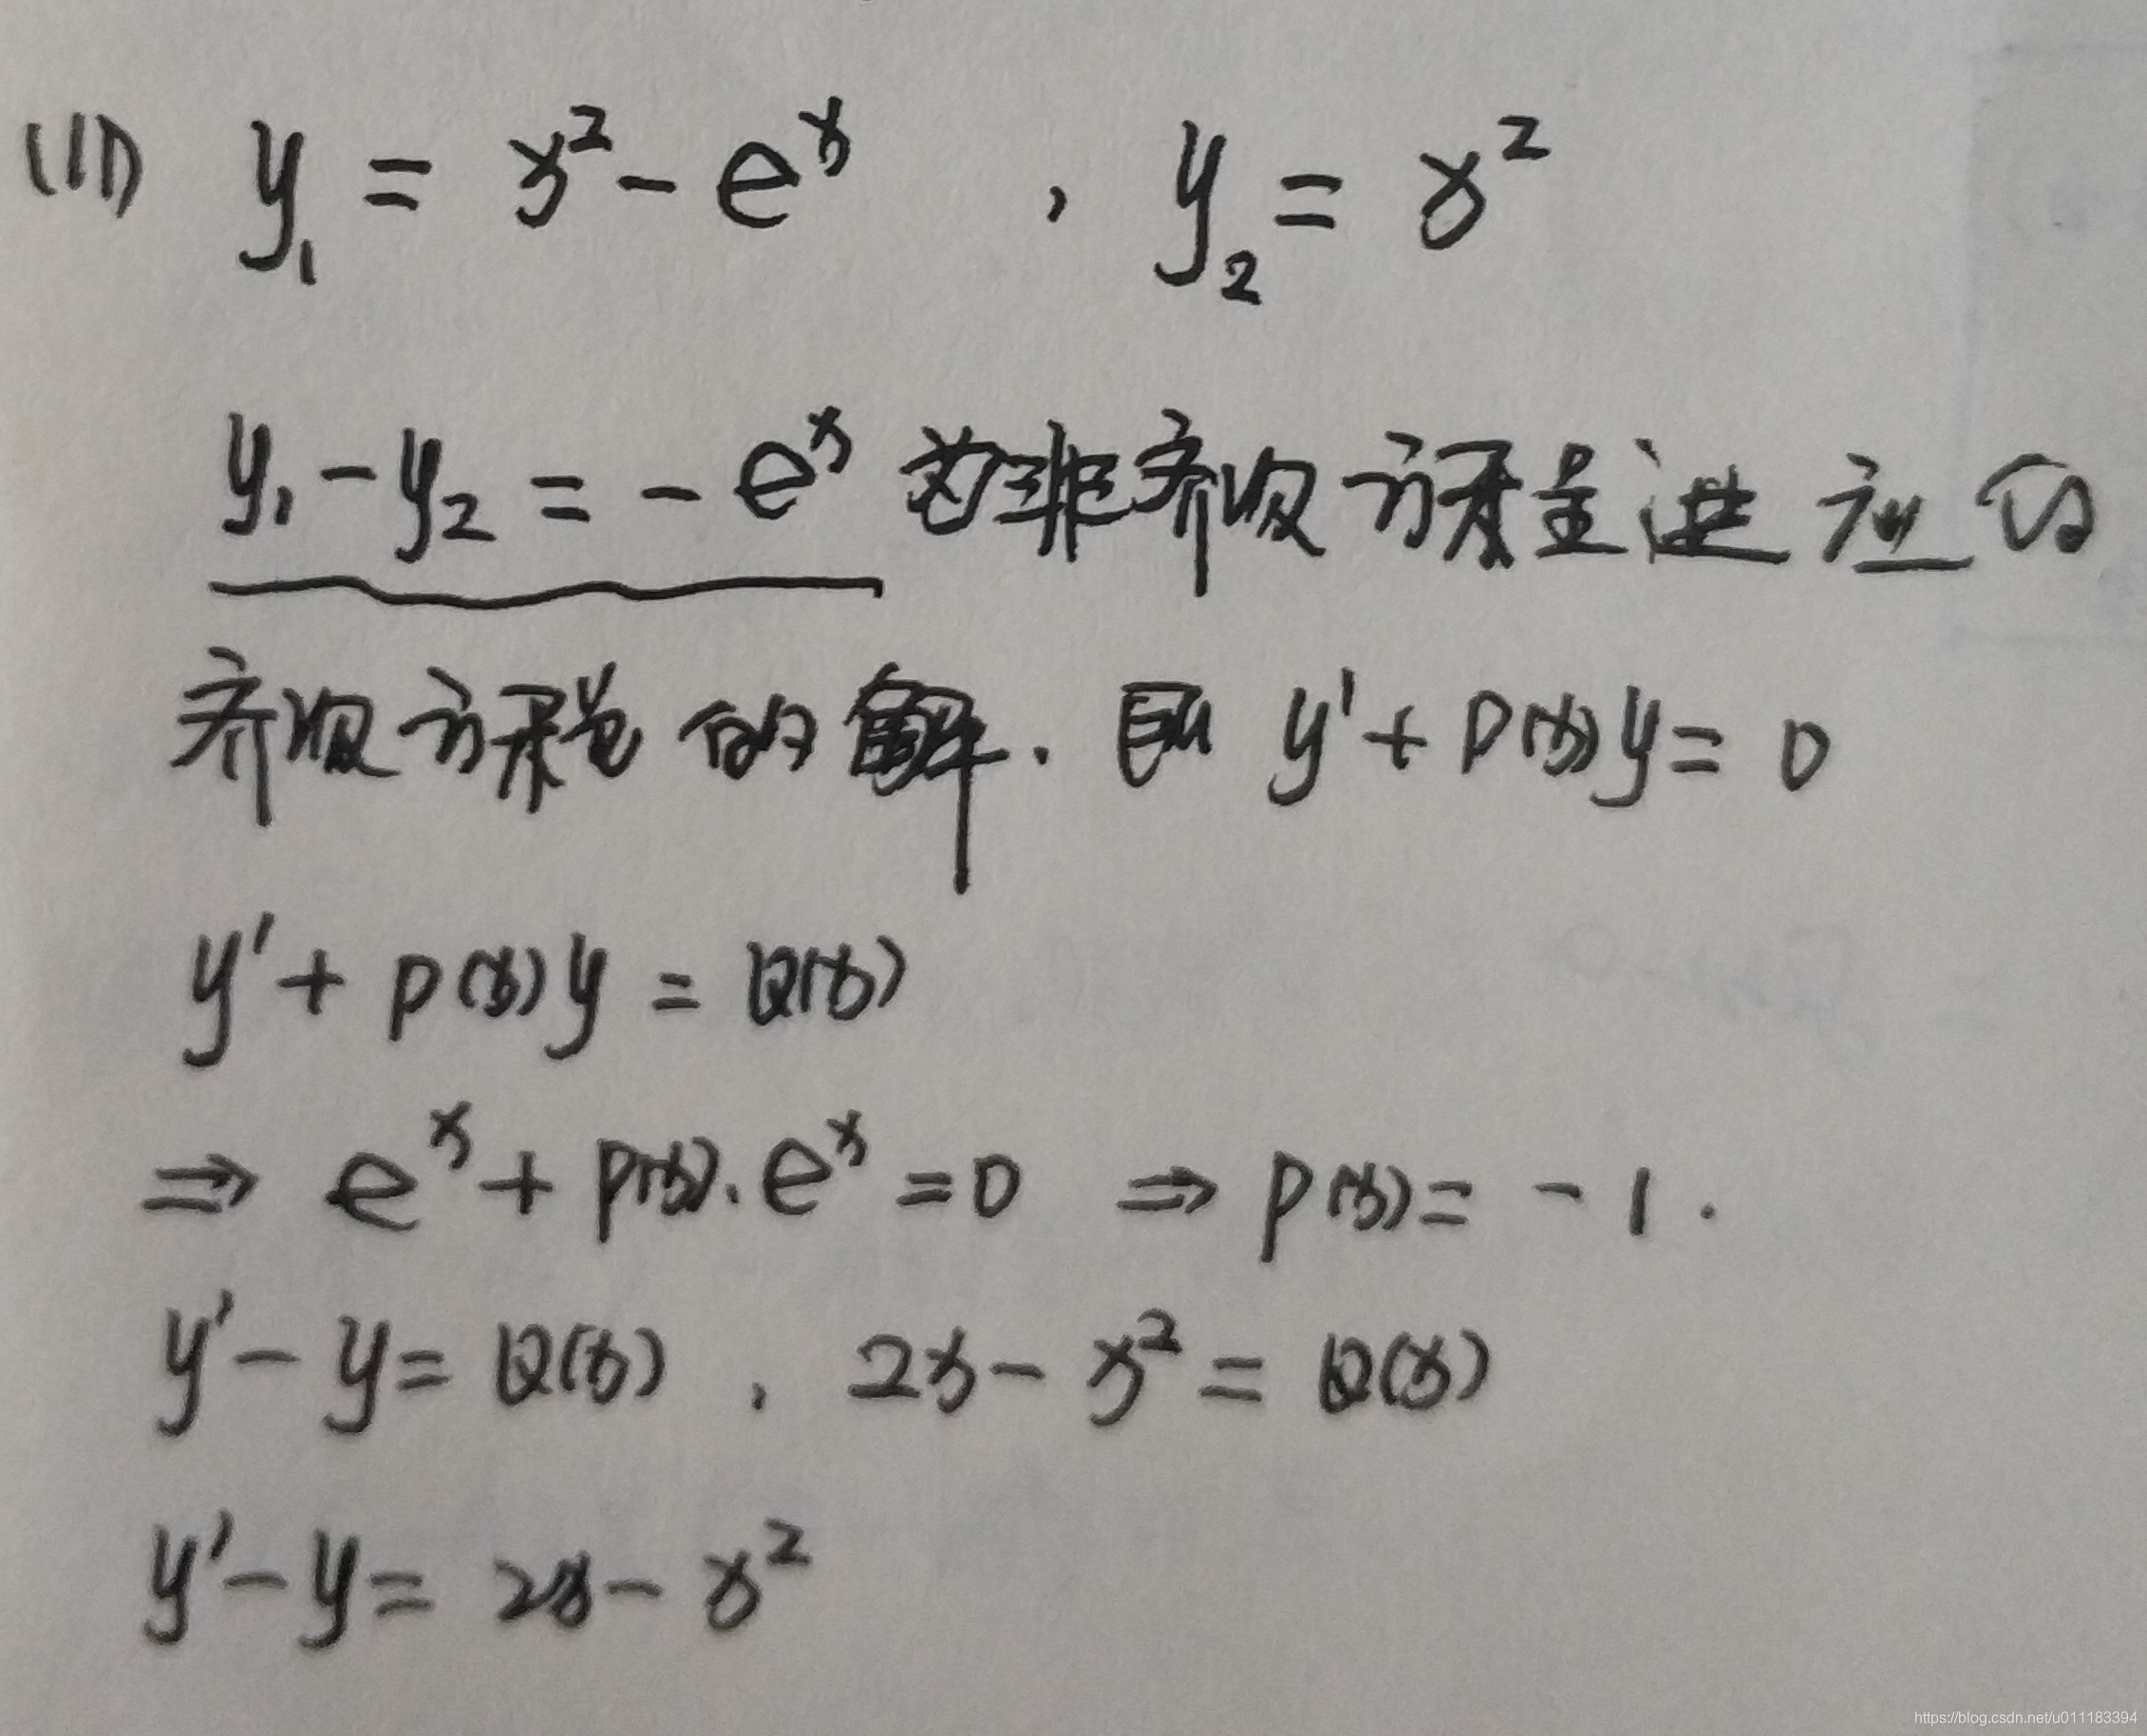 (11) y₁ = x² - eˣ , y₂ = x²
y₁ - y₂ = -eˣ 为非齐次方程对应的
齐次方程的解. 即 y' + P(x)y = 0
y' + P(x)y = Q(x)
⇒ eˣ + P(x)·eˣ = 0 ⇒ P(x) = -1.
y' - y = Q(x) , 2x - x² = Q(x)
y' - y = 2x - x²
https://blog.csdn.net/u011183394